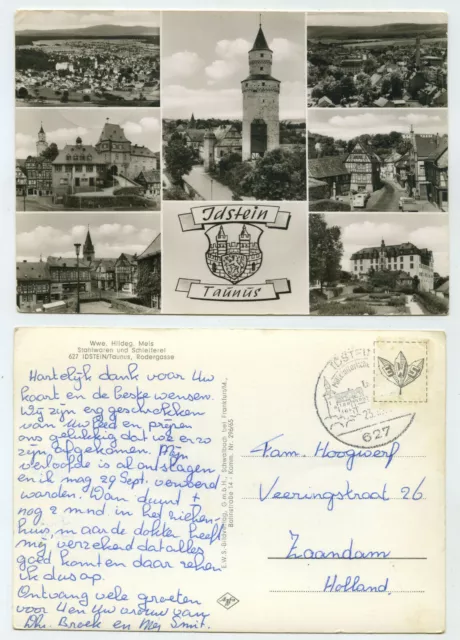 Idstein
Taunus
Wwe. Hildeg. Meis
Stahlwaren und Schleiferei
627 IDSTEIN/Taunus, Rodergasse
Hartelijk dank voor Uw
kaart en de beste wensen.
Wij zijn erg geschrokken
van Uw leed en prijzen
ons gelukkig dat we er zo
zijn afgekomen. Mijn
verloofde is al ontslagen
en ik mag 29 Sept. vervoerd
worden. Dan duurt het ±
nog 2 mnd in het zieken-
huis, maar de dokter heeft
mij verzekerd dat alles
goed komt en daar reken
ik dus op.
Ontvang vele groeten
voor U en Uw vrouw van
Dhr. Broek en Mej Smit.
E.W.S.-Bildverlag, G.m.b.H., Schwalbach bei Frankfurt/M.,
Bahnstraße 14 - Komm. Nr. 296/65
Agfa
IDSTEIN
23.
627
Fam. Hoogwerf
Veeringstraat 26
Zaandam
Holland.